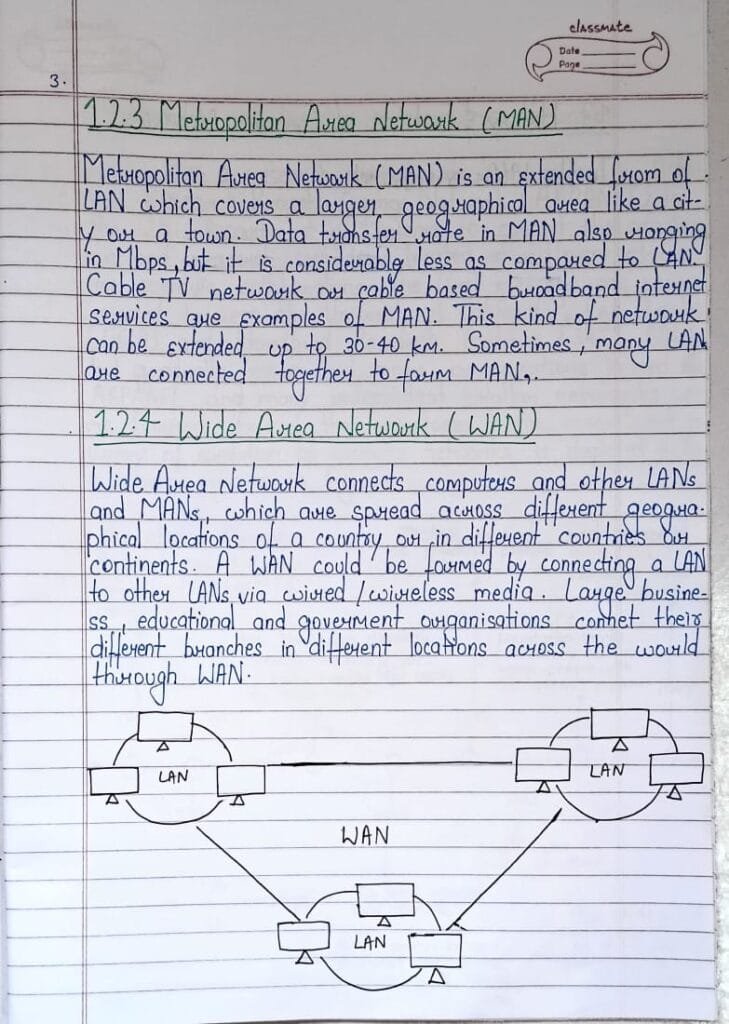 classmate
Date
Page
3.
1.2.3 Metropolitan Area Network (MAN)
Metropolitan Area Network (MAN) is an extended from of
LAN which covers a larger geographical area like a cit-
y or a town. Data transfer rate in MAN also ranging
in Mbps, but it is considerably less as compared to LAN
Cable TV network or cable based broadband internet
services are examples of MAN. This kind of network
can be extended up to 30-40 km. Sometimes, many LAN
are connected together to form MAN,.
1.2.4 Wide Area Network (WAN)
Wide Area Network connects computers and other LANs
and MANs, which are spread across different geogra-
phical locations of a country or in different countries or
continents. A WAN could be formed by connecting a LAN
to other LANs via wired/wireless media. Large busine-
ss, educational and goverment organisations connet their
different branches in different locations across the world
through WAN.
LAN
LAN
WAN
LAN